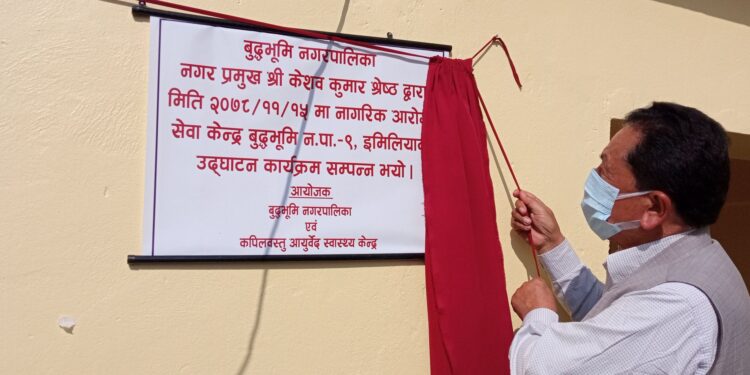 बुद्धभूमि नगरपालिका
नगर प्रमुख श्री केशव कुमार श्रेष्ठ द्वारा
मिति २०७८/११/१५ मा नागरिक
सेवा केन्द्र बुद्धभूमि न.पा.-९,
उद्घाटन कार्यक्रम सम्पन्न भयो।
आयोजक
बुद्धभूमि नगरपालिका
एवं
कपिलवस्तु आयुर्वेद स्वास्थ्य केन्द्र